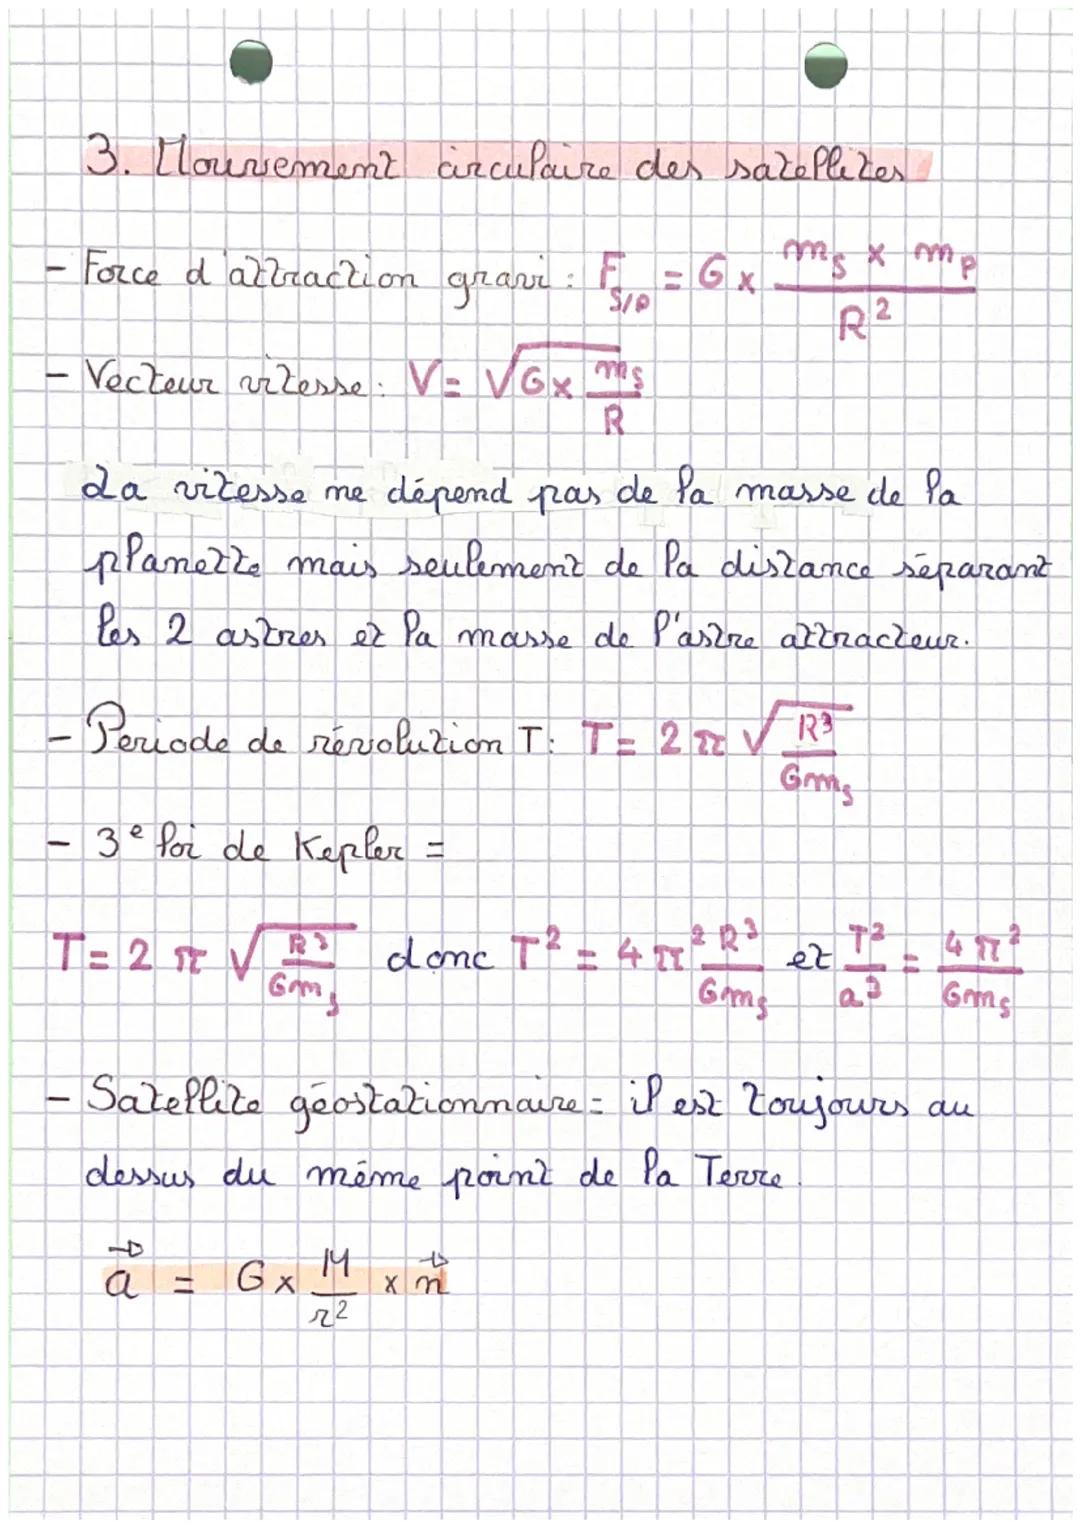 3. Mouvement circulaire des satellites
- Force d'attraction gravi : F_S/P = G x (m_s x m_p)/R²
- Vecteur vitesse : V = √(G x m_s/R)
La vitesse ne dépend pas de la masse de la
planette mais seulement de la distance séparant
les 2 astres et la masse de l'astre attracteur.
- Periode de révolution T : T = 2π √(R³/Gm_s)
- 3e loi de Kepler =
T = 2π √(R³/Gm_s) donc T² = 4π² R³/Gm_s et T²/a³ = 4π²/Gm_s
- Satellite géostationnaire = il est toujours au
dessus du même point de la Terre.
a⃗ = G x M/r² x n⃗